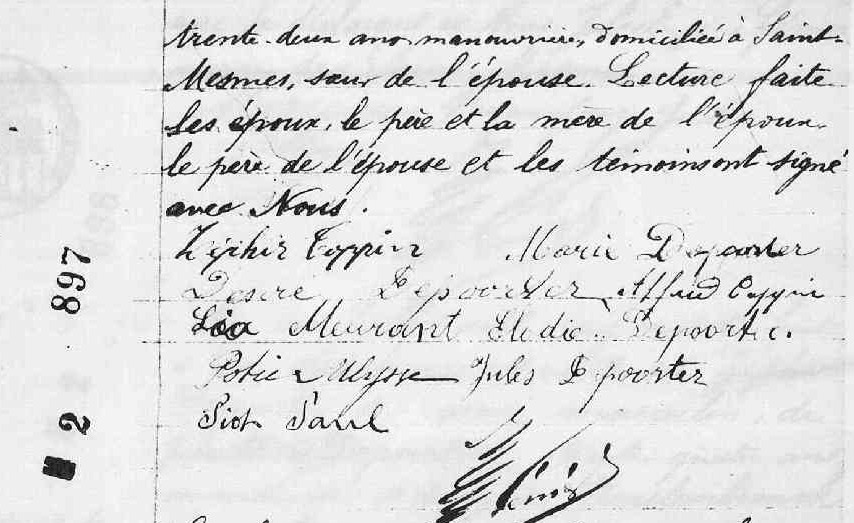 trente-deux ans, manouvrière, domiciliée à Saint-
Mesmes, sœur de l'épouse. Lecture faite
Les époux, le père et la mère de l'époux,
le père de l'épouse et les témoins ont signé
avec Nous.
Zéphir Coppin Marie Depoorter
Desire Depoorter Alfred Coppin
Léa Meurant Elodie Depoorter.
Potier Ulysse Jules Depoorter
Piot Paul
897
2